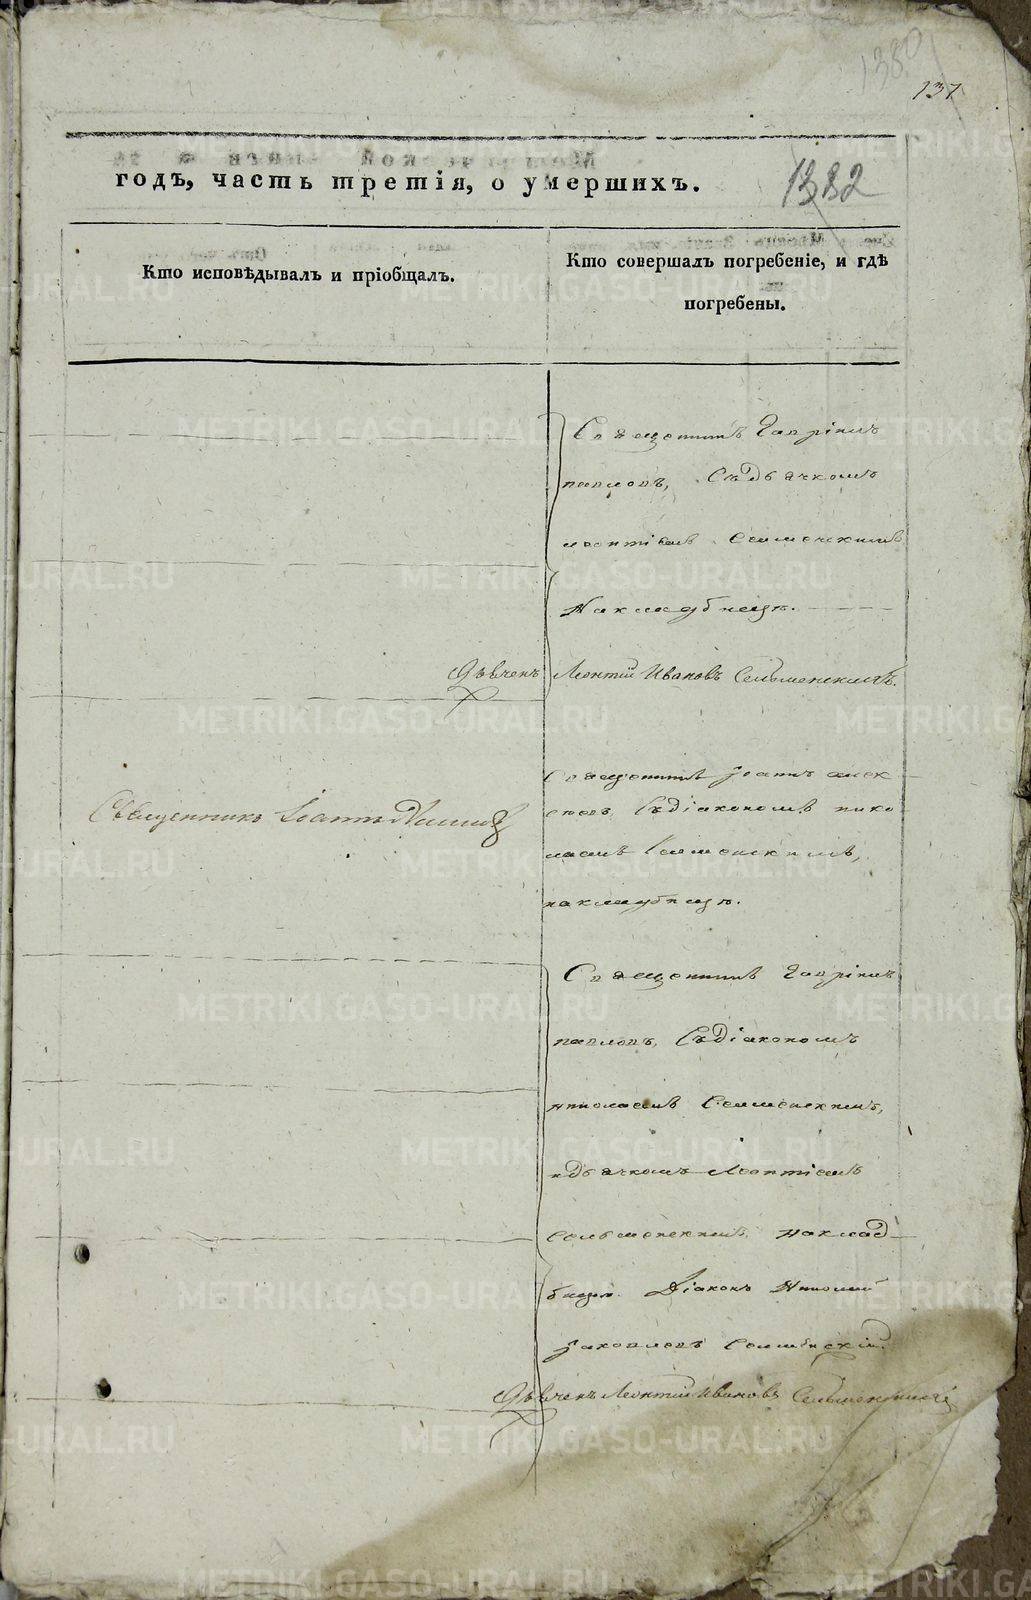 1380
137
годъ, часть третія, о умершихъ.
1382
Кто исповѣдывалъ и пріобщалъ.
Кто совершалъ погребеніе, и гдѣ
погребены.
Священникъ Гавріилъ
павловъ, Съдьячкомъ
леонтіемъ Селменскимъ
Накладбищѣ.
Дьячекъ Леонтій Ивановъ Селменскій.
Священникъ Іоаннъ алек
сѣевъ, Съдіакономъ нико
лаемъ Селменскимъ,
накладбищѣ.
Священникъ Іоаннъ
Священникъ Гавріилъ
павловъ, Съдіакономъ
николаемъ Селменскимъ,
идьячкомъ Леонтіемъ
Селменскимъ наклад
бищѣ. Діаконъ Николай
Яковлевъ Селменскій.
Дьячекъ Леонтій Ивановъ Селменскій
METRIKI.GASO-URAL.RU